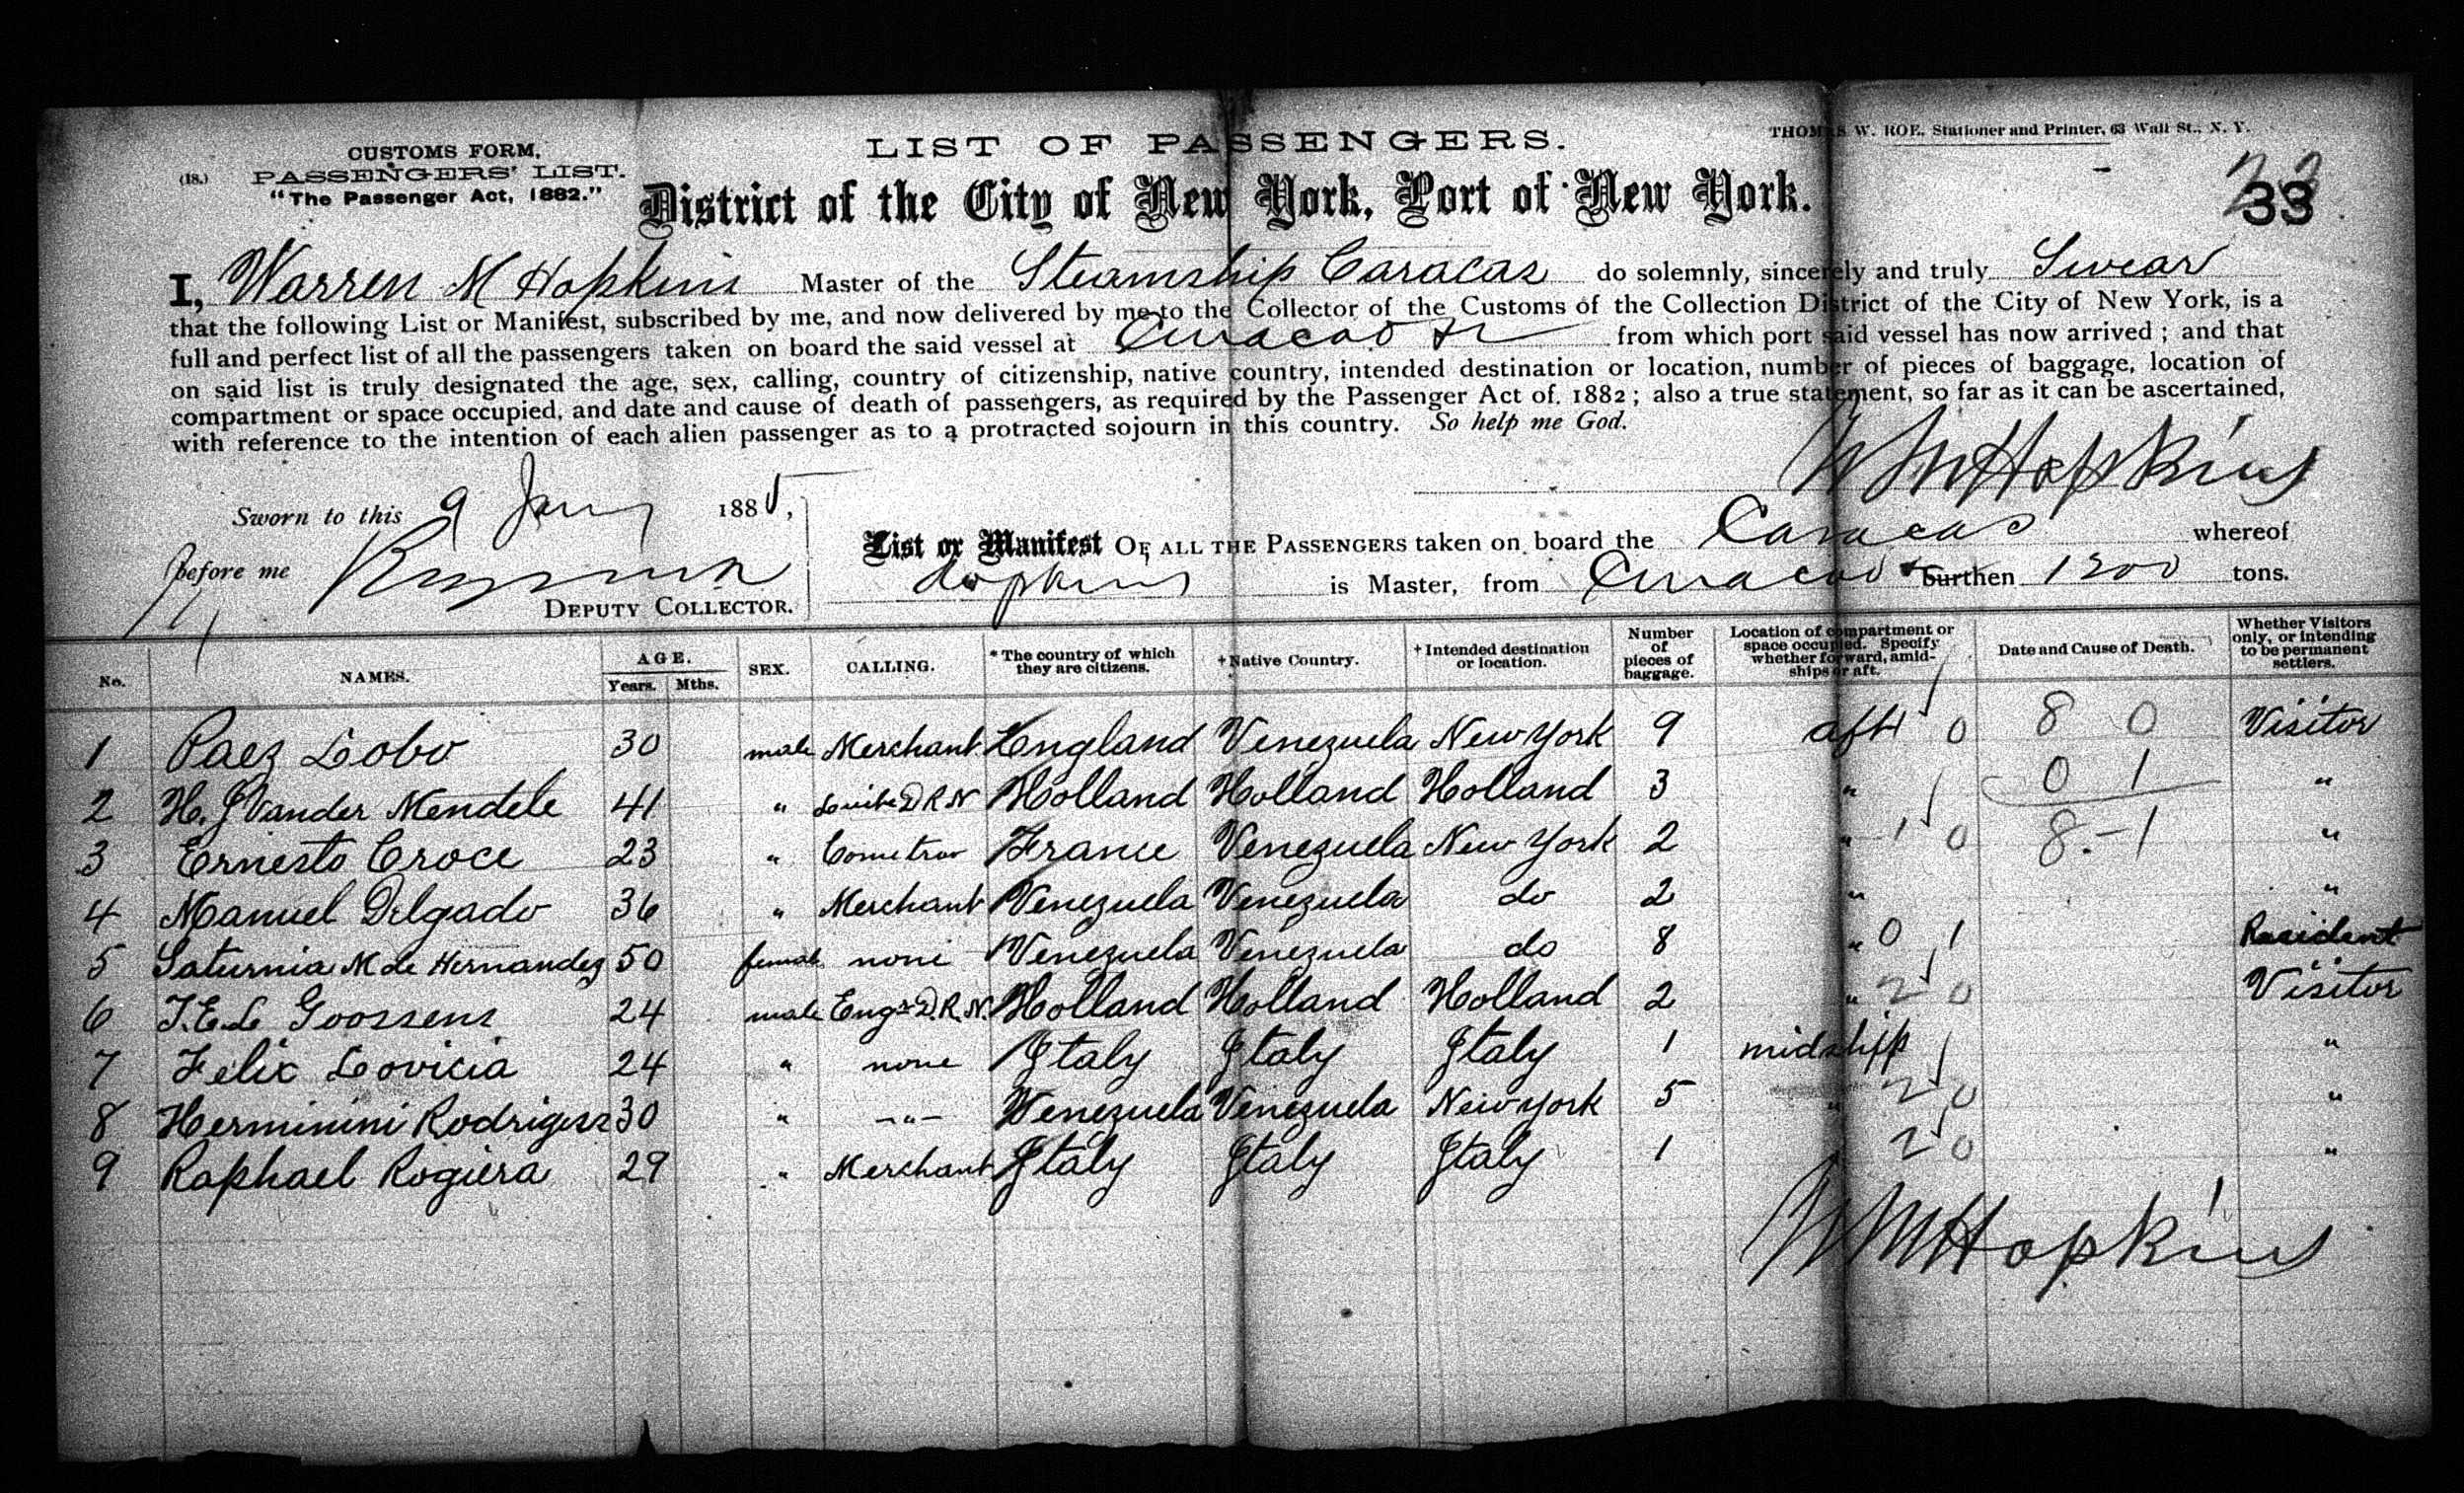 LIST OF PASSENGERS.
THOMAS W. ROE, Stationer and Printer, 63 Wall St., N. Y.
CUSTOMS FORM,
(18.) PASSENGERS' LIST.
"The Passenger Act, 1882."
District of the City of New York, Port of New York.
33
I, Warren M Hopkins Master of the Steamship Caracas do solemnly, sincerely and truly Swear
that the following List or Manifest, subscribed by me, and now delivered by me to the Collector of the Customs of the Collection District of the City of New York, is a
full and perfect list of all the passengers taken on board the said vessel at Curacao from which port said vessel has now arrived ; and that
on said list is truly designated the age, sex, calling, country of citizenship, native country, intended destination or location, number of pieces of baggage, location of
compartment or space occupied, and date and cause of death of passengers, as required by the Passenger Act of. 1882 ; also a true statement, so far as it can be ascertained,
with reference to the intention of each alien passenger as to a protracted sojourn in this country. So help me God.
W M Hopkins
Sworn to this 9 Jany 1885,
before me
DEPUTY COLLECTOR.
List or Manifest OF ALL THE PASSENGERS taken on board the Caracas whereof
Hopkins is Master, from Curacao burthen 1200 tons.
No. NAMES. AGE. Years. Mths. SEX. CALLING. * The country of which they are citizens. † Native Country. † Intended destination or location. Number of pieces of baggage. Location of compartment or space occupied. Specify whether forward, amidships or aft. Date and Cause of Death. Whether Visitors only, or intending to be permanent settlers.
1 Paez Lobo 30 male Merchant England Venezuela New York 9 aft 0 8 0 Visitor
2 H. J Vander Mendele 41 " D R N Holland Holland Holland 3 " 0 1 "
3 Ernesto Croce 23 " France Venezuela New York 2 " 1 0 8 - 1 "
4 Manuel Delgado 36 " Merchant Venezuela Venezuela do 2 " "
5 Saturnia M de Hernandez 50 female none Venezuela Venezuela do 8 " 0 1 Resident
6 J. E. L Goossens 24 male Engr D. R. N. Holland Holland Holland 2 " 2 0 Visitor
7 Felix Lovicia 24 " none Italy Italy Italy 1 midships "
8 Herminini Rodriguez 30 " -"- Venezuela Venezuela New York 5 " 2 0 "
9 Raphael Rogiera 29 " Merchant Italy Italy Italy 1 2 0 "
W M Hopkins